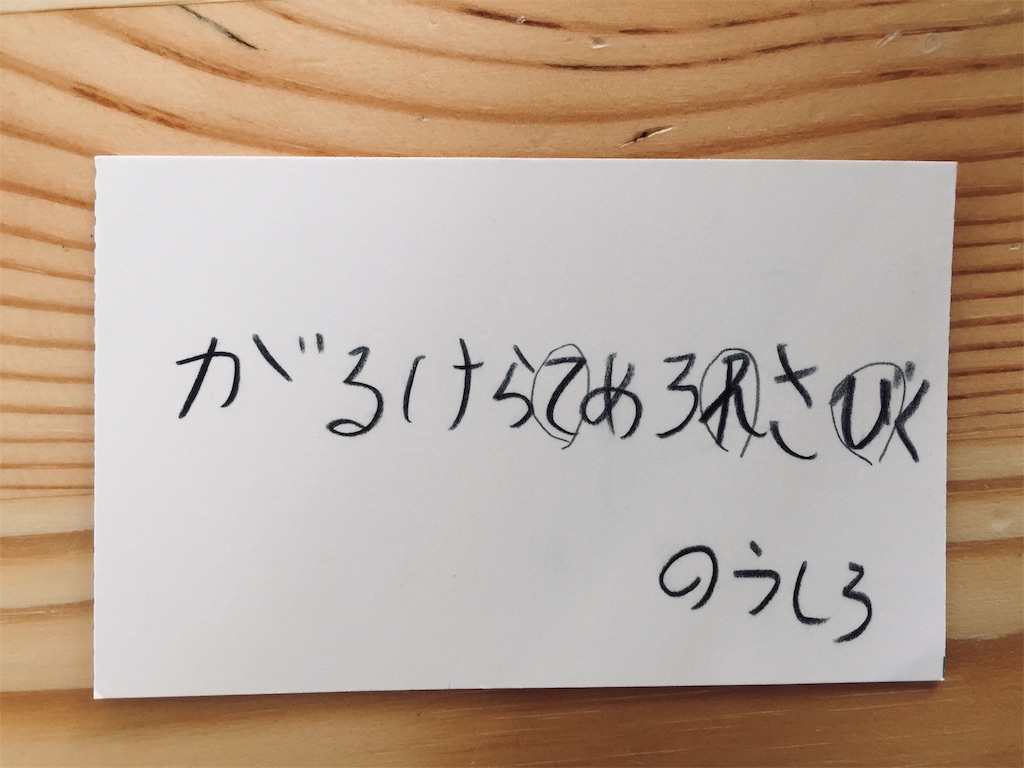 がるけらてめろれさびく
のうしろ